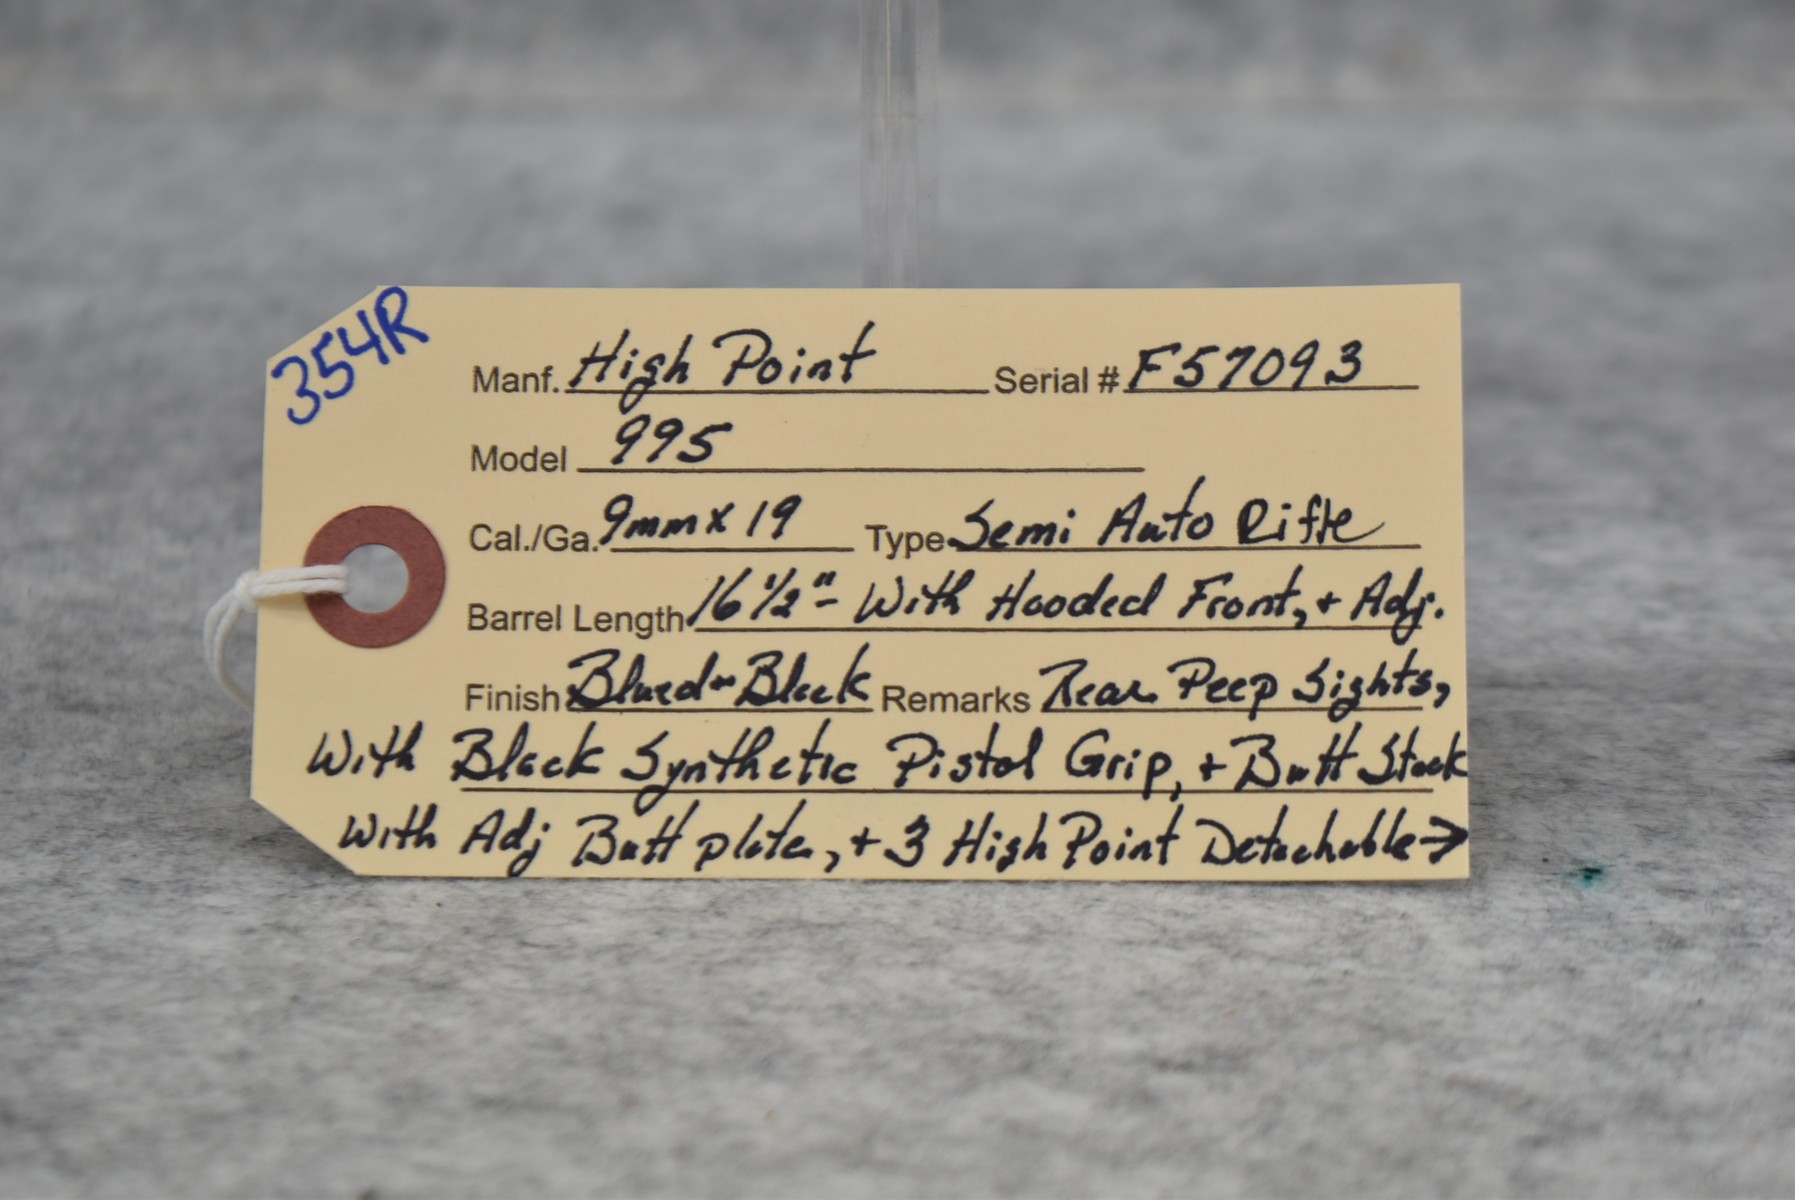 354R
Manf. High Point Serial # F57093
Model 995
Cal./Ga. 9mm x 19 Type Semi Auto Rifle
Barrel Length 16 1/2" - With Hooded Front, + Adj.
Finish Blued - Black Remarks Rear Peep Sights,
With Black Synthetic Pistol Grip, + Butt Stock
With Adj Butt plate, + 3 High Point Detachable →